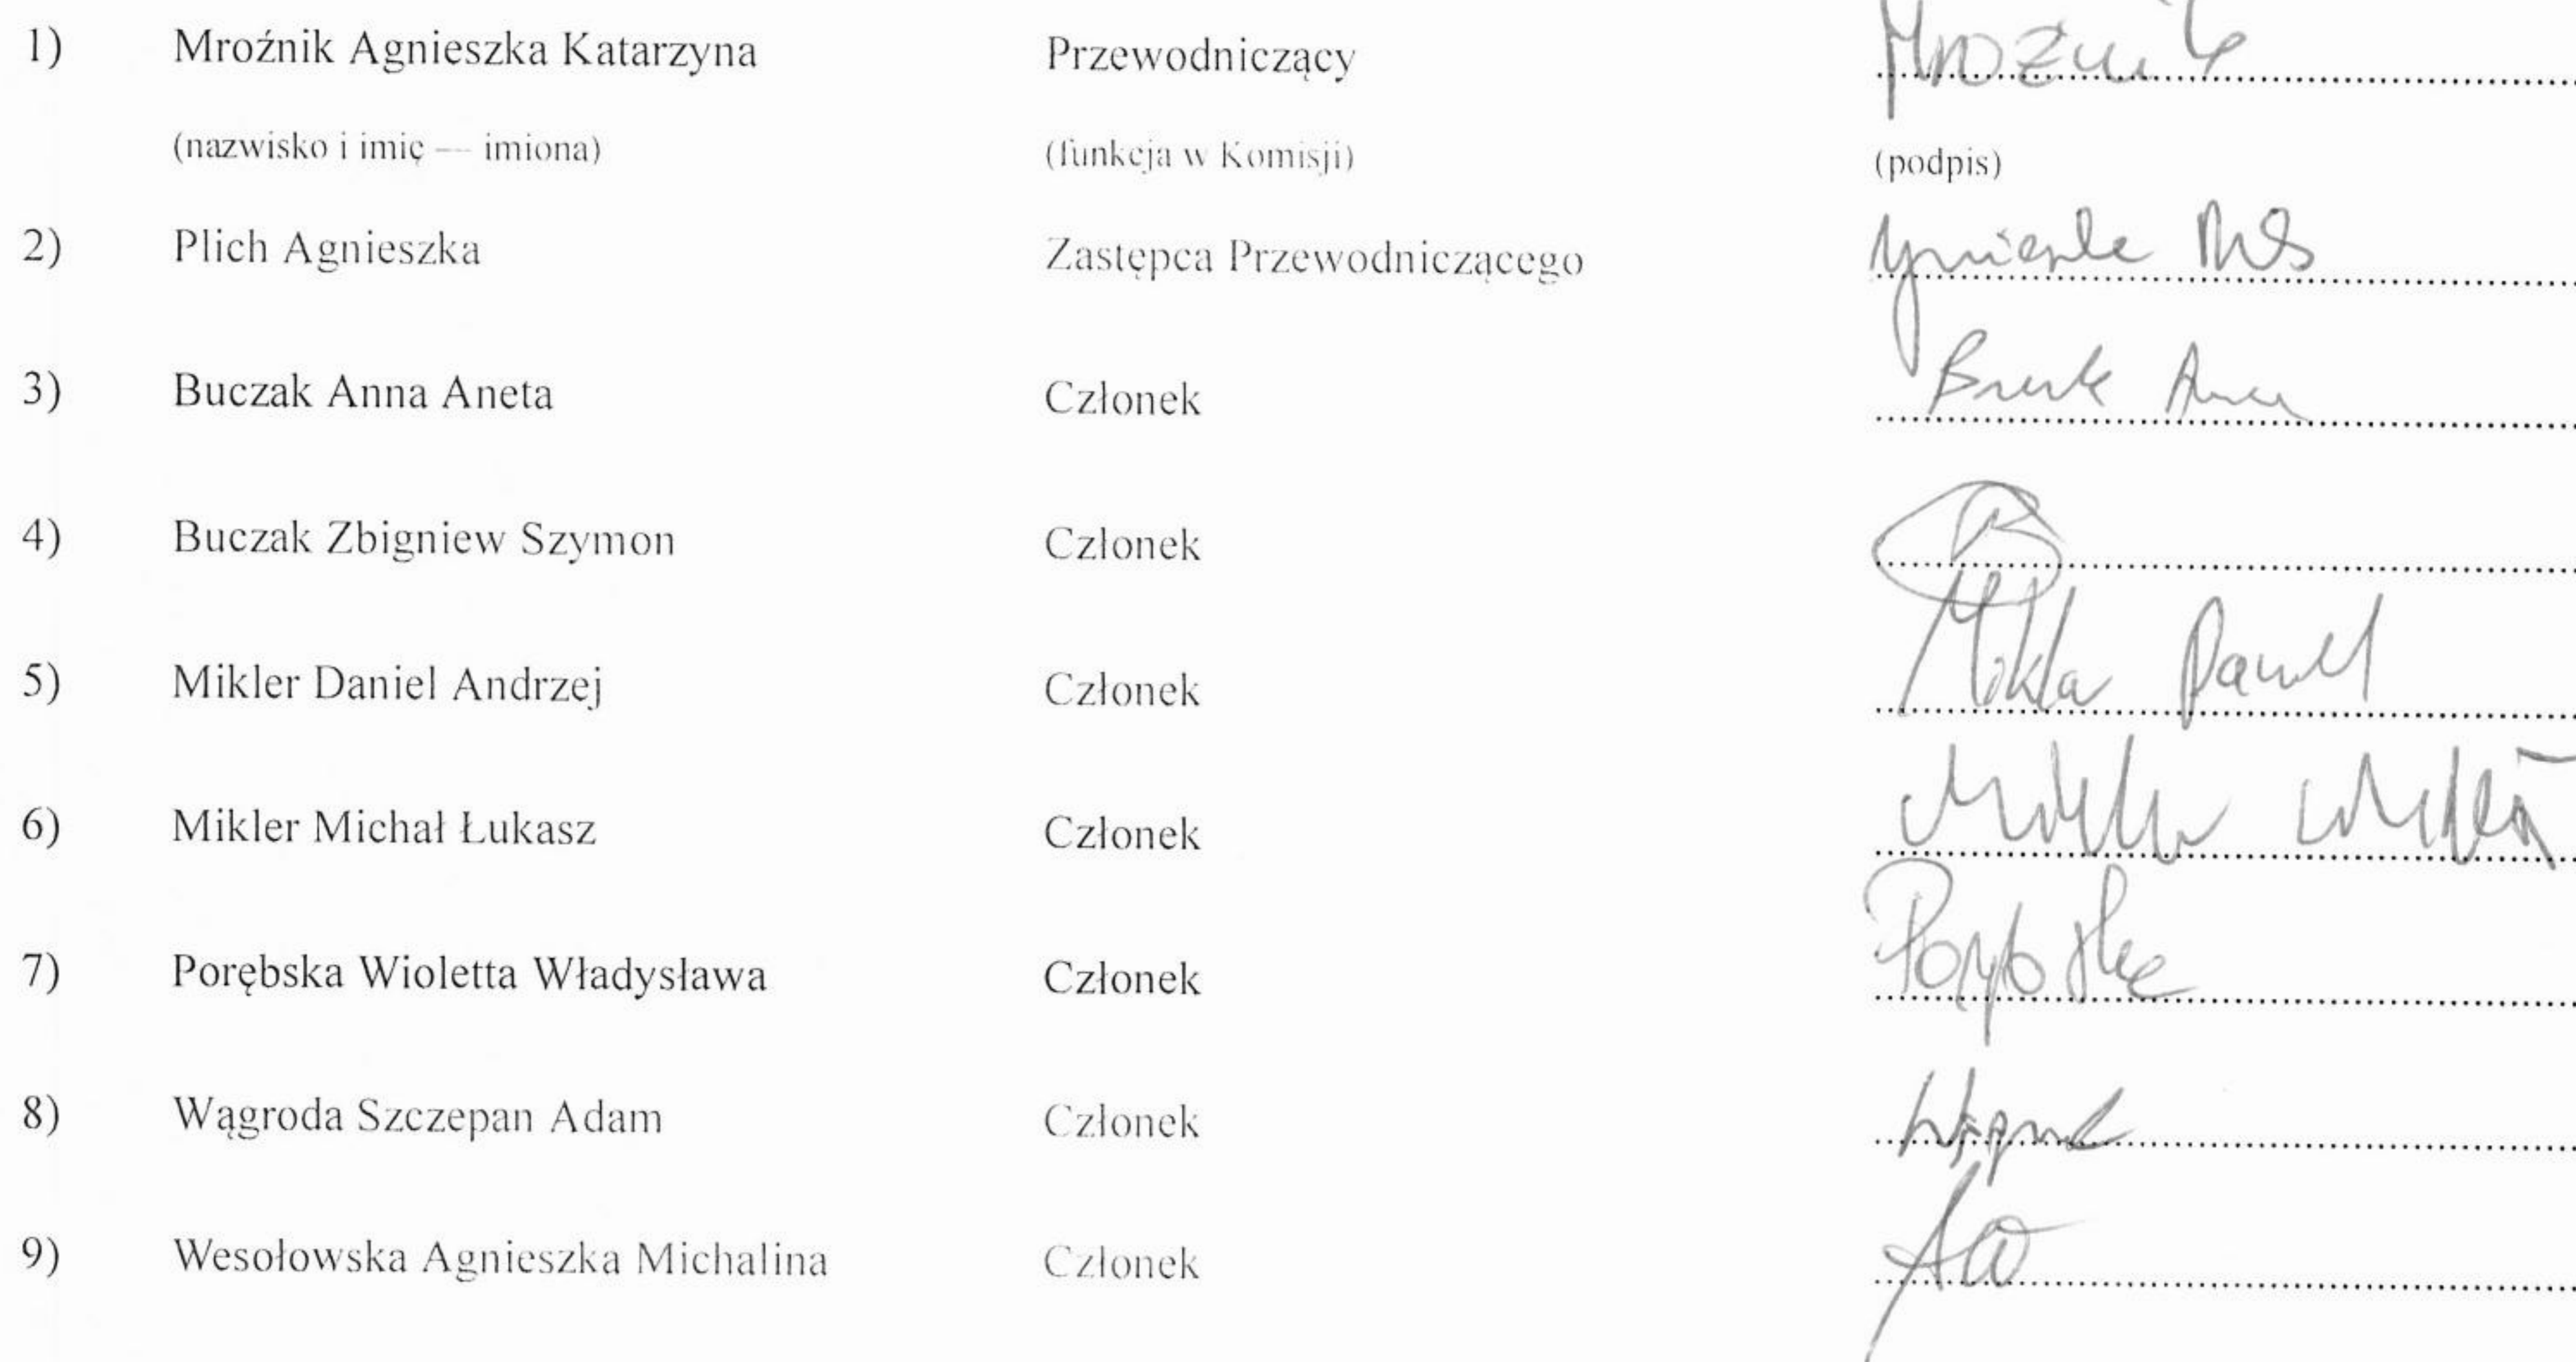 1) Mroźnik Agnieszka Katarzyna Przewodniczący Mroźnik
(nazwisko i imię — imiona) (funkcja w Komisji) (podpis)
2) Plich Agnieszka Zastępca Przewodniczącego
3) Buczak Anna Aneta Członek
4) Buczak Zbigniew Szymon Członek
5) Mikler Daniel Andrzej Członek
6) Mikler Michał Łukasz Członek
7) Porębska Wioletta Władysława Członek Porębska
8) Wągroda Szczepan Adam Członek
9) Wesołowska Agnieszka Michalina Członek AW